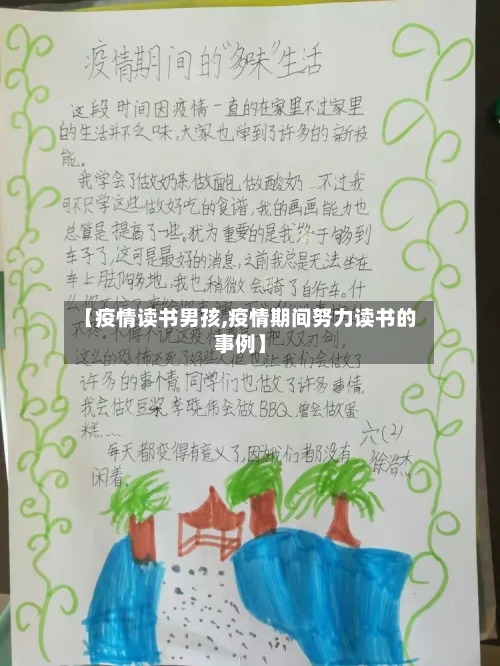 疫情期间的"多味"生活
这段时间因疫情一直的在家里不过家里
的生活并不乏味,大家也学到了许多的新技
能。
我学会了做奶茶,做面包,做酸奶…不过我
可不只学这些做好吃的食谱,我的画画能力也
总算是提高了一些。犹为重要的是我终于够到
车子了,这可是最好的消息,之前我总是无法坐在
车上脚够地,我也稍微会骑了自行车。什
【疫情读书男孩,疫情期间努力读书的
事例】
把双刃剑,
也让我们会做了
许多的事情,同学们也做了许多事情,
我会做豆浆,李晓伟会做BBQ,曾会做蛋
糕……
每天都变得有意义了,因为我们都没有
闲着。
六(2)
徐浩杰